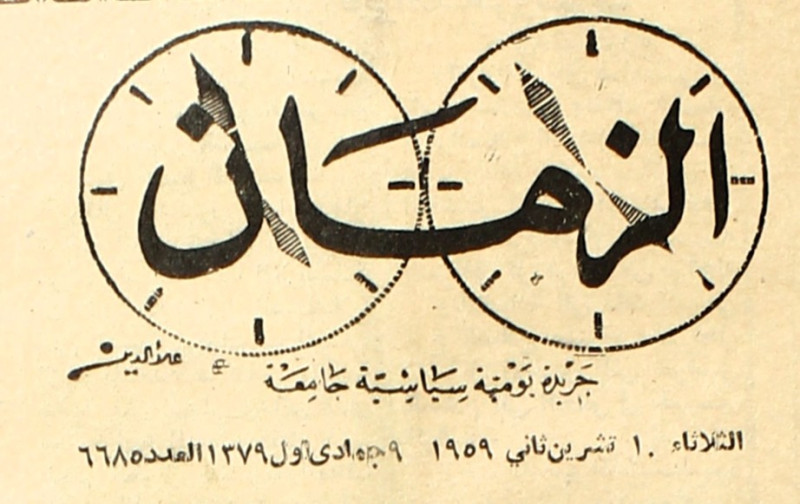 الزمان
علاءالدين
جريدة يومية سياسية جامعة
الثلاثاء ١٠ تشرين ثاني ١٩٥٩ ٩ جمادى اول ١٣٧٩ العدد ٦٦٨٥